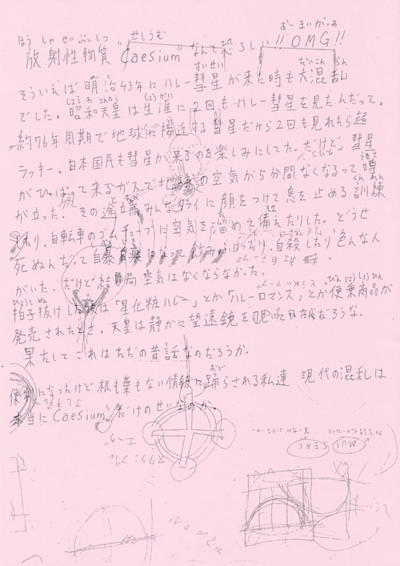 放射性物質 "Caesium" なんて恐ろしい!! OMG!!
そういえば明治43年にハレー彗星が来た時も大混乱
でした。昭和天皇は生涯に2回もハレー彗星を見たんだって。
約76年周期で地球に接近する彗星だから2回も見れたら超
ラッキー。日本国民も彗星が来るのを楽しみにしてた。だけど 彗星
がひっぱって来るガスで地球の空気が5分間なくなるって噂
が立った。その途端みんなタライに顔をつけて息を止める訓練
自転車のゴムチューブに空気を溜めて備えたりした。どうせ
死ぬんだって自暴 飲み 自殺したり色んな人
がいた。だけど結局空気はなくならなかった。
拍子抜けした後は「星化粧ハレー」とか「ハレーロマンス」とか便乗商品が
発売されたとき、天皇は静かに望遠鏡を
果たしてこれはただの昔話なのだろうか。
便利になったけど根も葉もない情報に踊らされる私達 現代の混乱は
本当に "Caesium" だけのせいなのか。